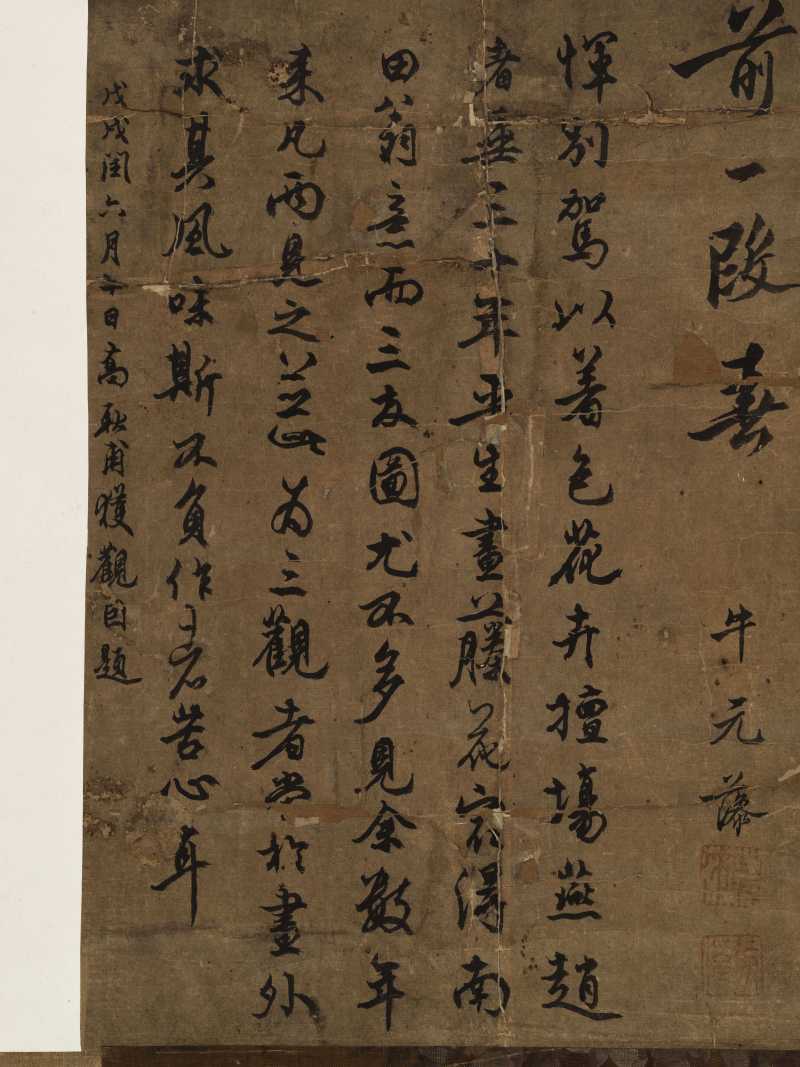 前一段喜
牛元
惲別駕以着色花卉擅場燕趙
者垂三十年平生畫藤花寔得南
田翁意而三友圖尤不多見余數年
来凡兩見之並此为三觀者当於畫外
求其風味斯不負作者苦心耳
戊戌閏六月日高耿甫獲觀因題